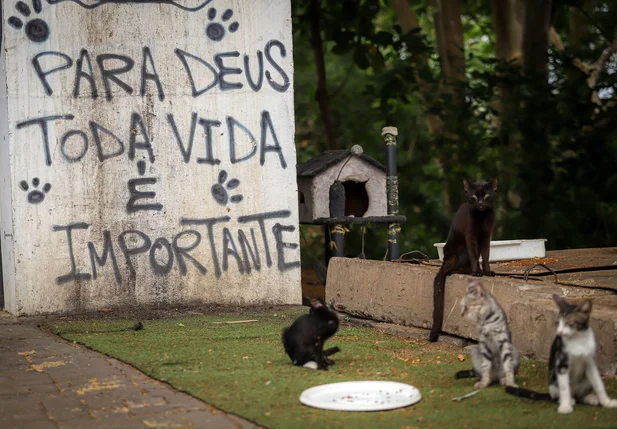 PARA DEUS
TODA VIDA
É
IMPORTANTE